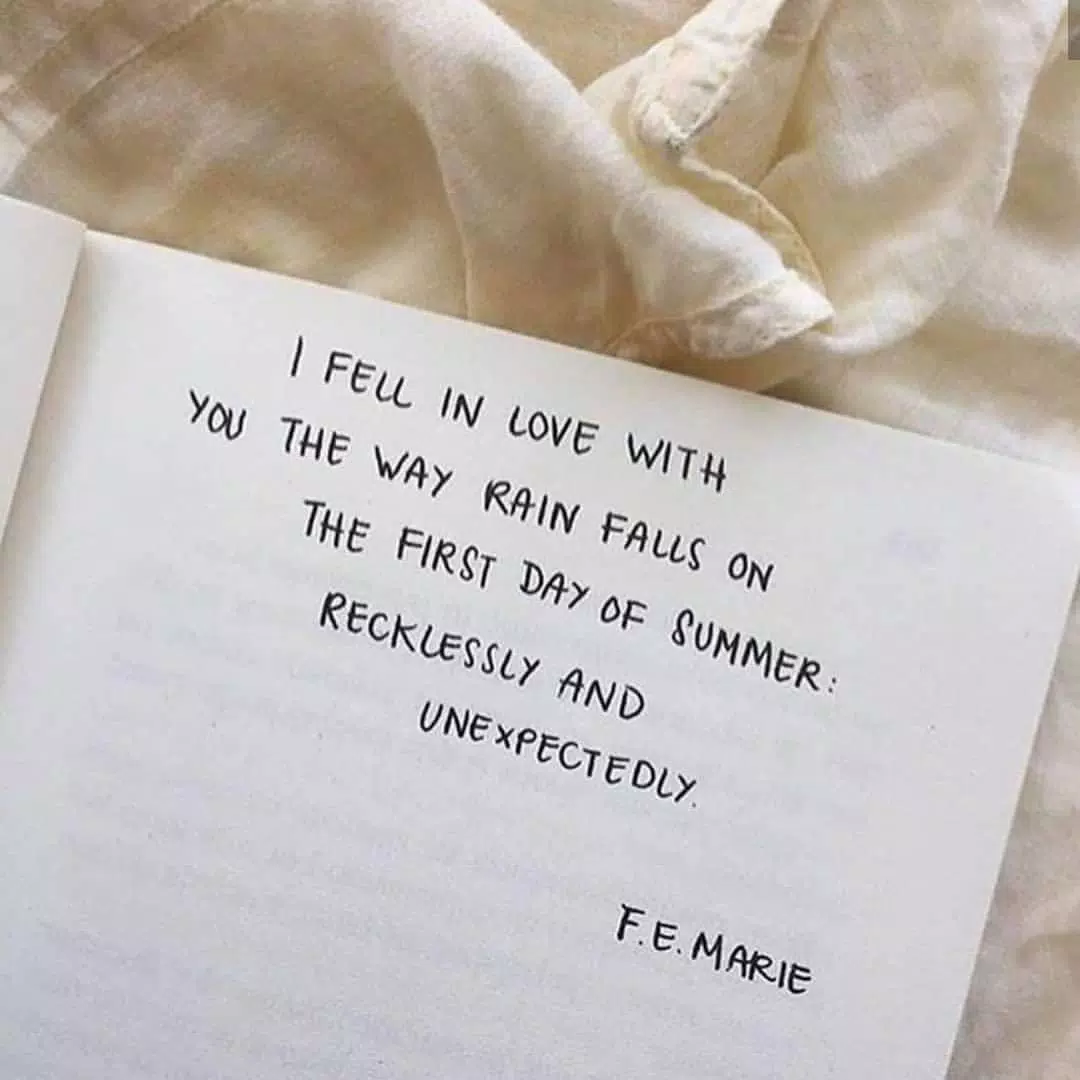 I FELL IN LOVE WITH
YOU THE WAY RAIN FALLS ON
THE FIRST DAY OF SUMMER:
RECKLESSLY AND
UNEXPECTEDLY.
F.E. MARIE